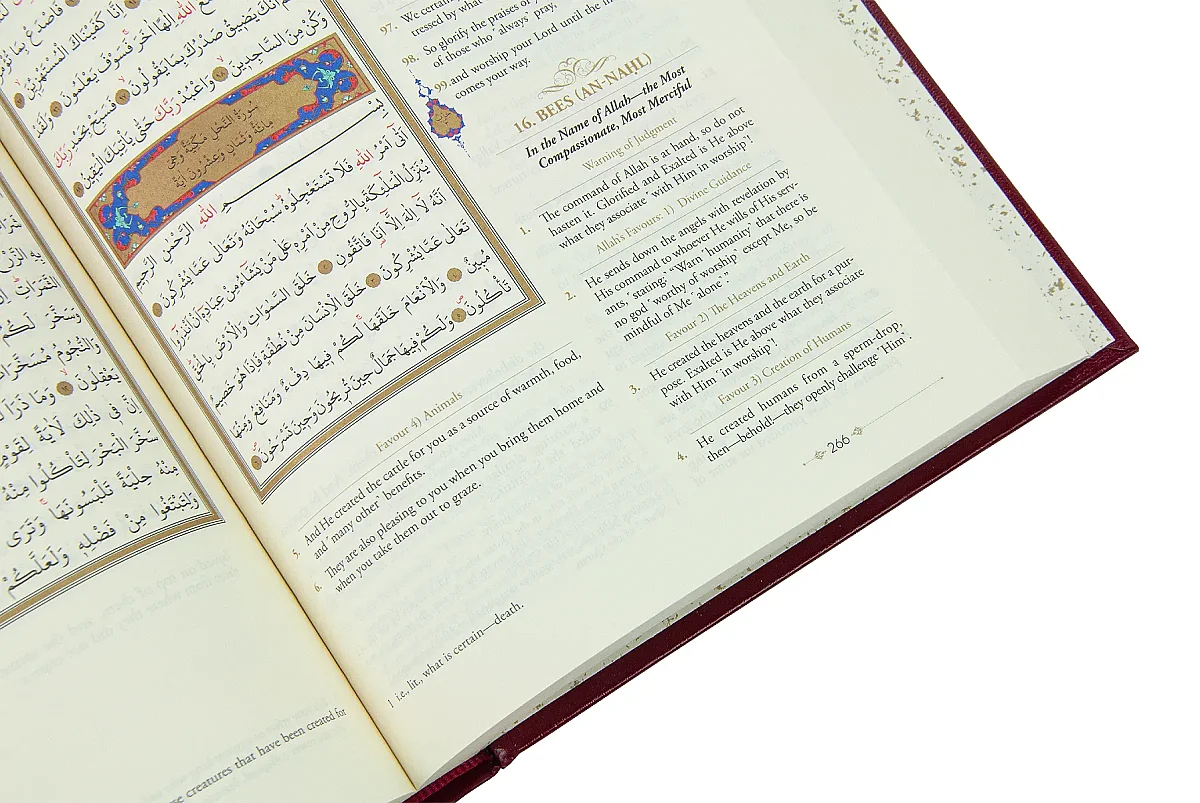 وَكُنْ مِنَ السَّاجِدِينَ ٩٨ وَاعْبُدْ رَبَّكَ حَتّٰى يَأْتِيَكَ الْيَقِينُ
سُورَةُ النَّحْلِ مَكِّيَّةٌ وَهِيَ
مِائَةٌ وَثَمَانٍ وَعِشْرُونَ اٰيَةً
بِسْمِ اللّٰهِ الرَّحْمٰنِ الرَّحِيمِ
اَتٰٓى اَمْرُ اللّٰهِ فَلَا تَسْتَعْجِلُوهُ سُبْحَانَهُ وَتَعَالٰى عَمَّا يُشْرِكُونَ ١
يُنَزِّلُ الْمَلٰٓئِكَةَ بِالرُّوحِ مِنْ اَمْرِهِ عَلٰى مَنْ يَشَٓاءُ مِنْ عِبَادِهِ اَنْ اَنْذِرُٓوا
اَنَّهُ لَٓا اِلٰهَ اِلَّٓا اَنَا فَاتَّقُونِ ٢ خَلَقَ السَّمٰوَاتِ وَالْاَرْضَ بِالْحَقِّ
تَعَالٰى عَمَّا يُشْرِكُونَ ٣ خَلَقَ الْاِنْسَانَ مِنْ نُطْفَةٍ فَاِذَا هُوَ خَصِيمٌ
مُبِينٌ ٤ وَالْاَنْعَامَ خَلَقَهَا لَكُمْ فِيهَا دِفْءٌ وَمَنَافِعُ وَمِنْهَا
تَأْكُلُونَ ٥ وَلَكُمْ فِيهَا جَمَالٌ حِينَ تُرِيحُونَ وَحِينَ تَسْرَحُونَ ٦
97. We certainly
tressed by what
98. So glorify the praises of
of those who ˹always˺ pray,
99. and worship your Lord until the
comes your way.
16. BEES (AN-NAḤL)
In the Name of Allah—the Most
Compassionate, Most Merciful
Warning of Judgment
1. The command of Allah is at hand, so do not
hasten it. Glorified and Exalted is He above
what they associate ˹with Him in worship˺!
Allah's Favours: 1) Divine Guidance
2. He sends down the angels with revelation by
His command to whoever He wills of His serv-
ants, ˹stating:˺ "Warn ˹humanity˺ that there is
no god ˹worthy of worship˺ except Me, so be
mindful of Me ˹alone˺."
Favour 2) The Heavens and Earth
3. He created the heavens and the earth for a pur-
pose. Exalted is He above what they associate
with Him ˹in worship˺!
Favour 3) Creation of Humans
4. He created humans from a sperm-drop,
then—behold!—they openly challenge ˹Him˺!
Favour 4) Animals
5. And He created the cattle for you as a source of warmth, food,
and ˹many other˺ benefits.
6. They are also pleasing to you when you bring them home and
when you take them out to graze.
1 i.e., lit., what is certain—death.
266
وَسَخَّرَ لَكُمُ
وَالنُّجُومُ مُسَخَّرَاتٌ
يَعْقِلُونَ ١٢ وَمَا ذَرَاَ
اِنَّ فِي ذٰلِكَ لَاٰيَةً لِقَوْمٍ
سَخَّرَ الْبَحْرَ لِتَأْكُلُوا مِنْهُ
مِنْهُ حِلْيَةً تَلْبَسُونَهَا وَتَرَى
وَلِتَبْتَغُوا مِنْ فَضْلِهِ وَلَعَلَّكُمْ
creatures that have been created for